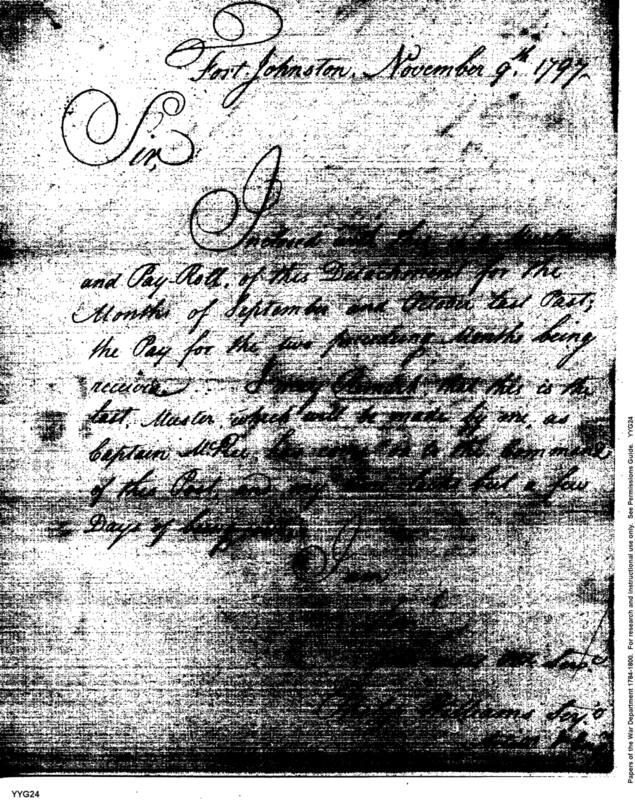 Fort Johnston, November 9th. 1797.
Sir,
Inclosed with this is a Muster
and Pay-Roll, of this Detachment for the
Months of September and October last Past;
the Pay for the two preceeding Months being
receiv'd I may Remark that this is the
last, Muster, which will be made by me, as
Captain McRee, has come on to the Command
of this Post, and my time lacks but a few
Days of being
I am
Williams
Papers of the War Department 1784-1800. For research and instructional use only. See Permissions Guide. YYG24
YYG24